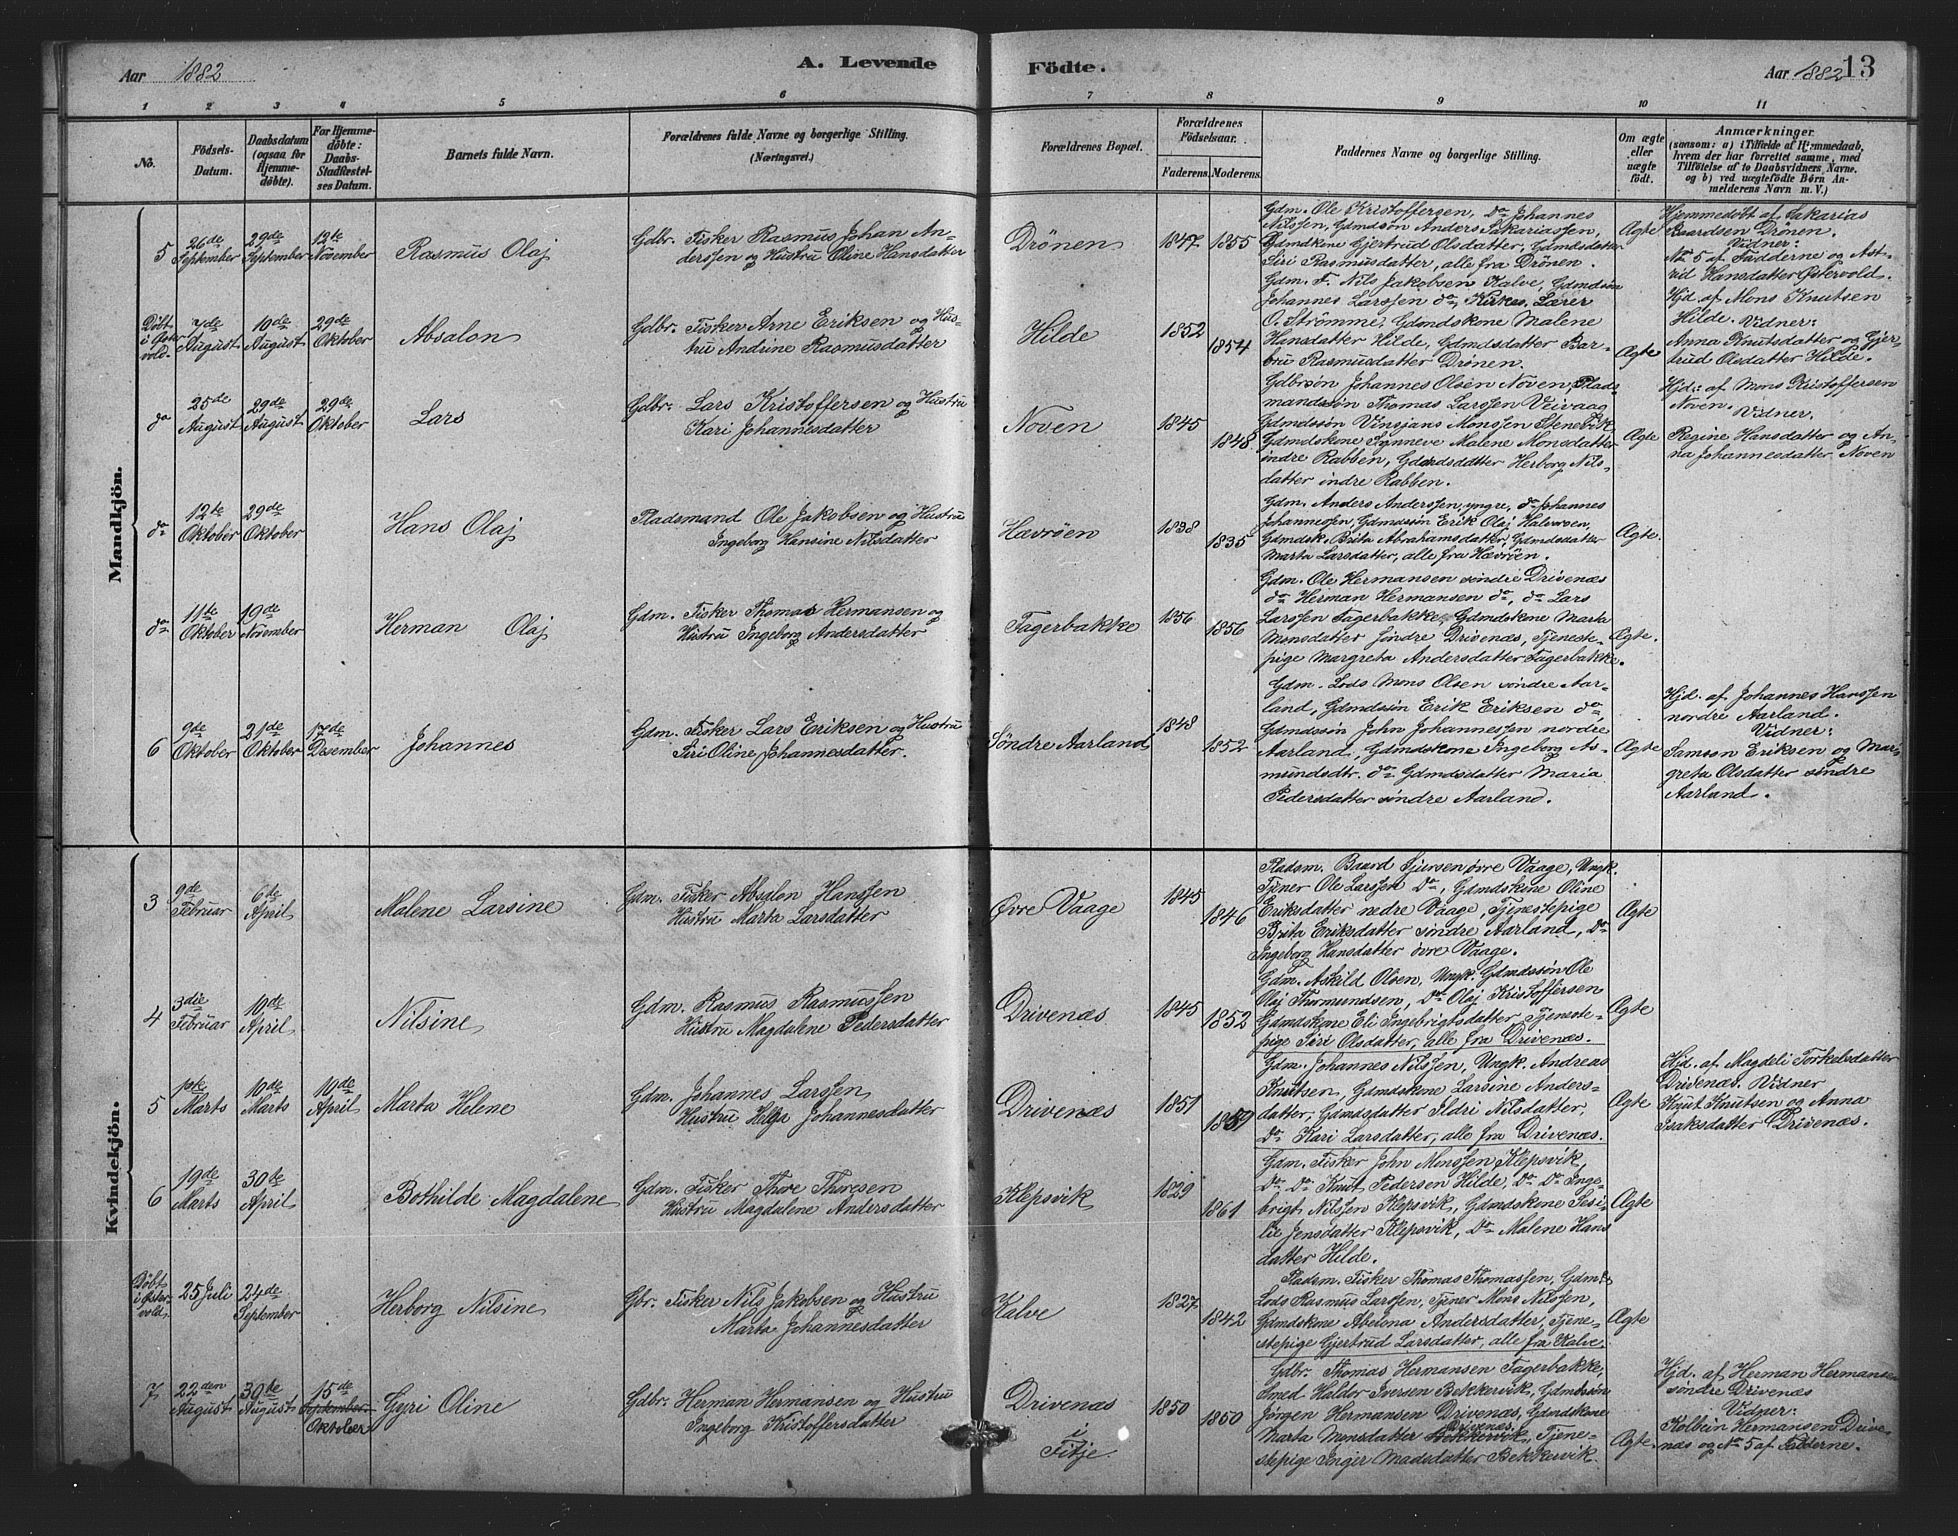 Aar 1882
A. Levende
Födte.
Aar 1882
13
1 2 3 4 5 6 7 8 9 10 11
No.
Födsels-
Datum.
Daabsdatum
(ogsaa for
Hjemme-
döbte).
For Hjemme-
döbte:
Daabs-
Stadfæstel-
ses Datum.
Barnets fulde Navn.
Forældrenes fulde Navne og borgerlige Stilling.
(Næringsvei.)
Forældrenes Bopæl.
Forældrenes
Födselsaar.
Faderens.
Moderens.
Faddernes Navne og borgerlige Stilling.
Om ægte
eller
uægte
födt.
Anmærkninger
(saasom: a) i Tilfælde af Hjemmedaab,
hvem der har forrettet samme, med
Tilföielse af to Daabsvidners Navne.
og b) ved uægtefödte Börn An-
melderens Navn m. V.)
Mandkjön.
5
26de
September
29de
September
12te
November
Rasmus Olaj
Gdbr. Fisker Rasmus Johan An-
derssen og Hustru Oline Hansdatter
Drönen
1847
1855
Gdm. Ole Kristoffersen, do Johannes
Nilssen, Gdmdsön Anders Sakariassen,
Gdmdskone Gjertrud Olsdatter, Gdmdsdatter
Siri Rasmusdatter, alle fra Drönen.
Ægte
Hjemmedöbt af Sakarias
Baardsen Drönen.
Vidner:
No 5 af Fadderne og Ast-
rid Hansdatter Østervold.
Döbt
i Øster
vold.
7de
August
10de
August
29de
Oktober
Absalon
Gdbr. Fisker Arne Eriksen og Hus-
tru Andrine Rasmusdatter
Hilde
1852
1854
Gdm. F. Nils Jakobsen Kalve, Gdmdsön
Johannes Larssen do, Kirkes. Lærer
O. Strömme, Gdmdskone Malene
Hansdatter Hilde, Gdmdsdatter Bar-
bru Rasmusdatter Drönen.
Ægte
Hjd. af Mons Knutsen
Hilde. Vidner:
Anna Knutsdatter og Gjer-
trud Olsdatter Hilde.
do
25de
August
29de
August
29de
Oktober
Lars
Gdbr. Lars Kristoffersen og Hustru
Kari Johannesdatter
Noven
1845
1848
Gdbrsön Johannes Olsen Noven, Plads-
mandssön Thomas Larssen Veivaag
Gdmdssön Vinsjans Monssen Stenevik,
Gdmdskone Synneve Malene Monsdatter
indre Rabben, Gdmdsdatter Herborg Nils-
datter indre Rabben.
Ægte
Hjd: af Mons Kristoffersen
Noven. Vidner.
Regine Hansdatter og An-
na Johannesdatter Noven
do
12te
Oktober
29de
Oktober
Hans Olaj
Pladsmand Ole Jakobsen og Hustru
Ingeborg Hansine Nilsdatter
Hævröen
1838
1835
Gdm. Anders Anderssen, yngre, do Johannes
Johannessen, Gdmdssön Erik Olaj Halvorsen,
Gdmdsk. Brita Abrahamsdatter, Gdmdsdatter
Marta Larsdatter, alle fra Hævröen.
Ægte.
do
11te
Oktober
19de
November
Herman Olaj
Gdm. Fisker Thomas Hermansen og
Hustru Ingeborg Andersdatter
Fagerbakke
1856
1856
Gdm. Ole Hermansen söndre Drivenæs
do Herman Hermansen do, do Lars
Larssen Fagerbakke, Gdmdskone Marta
Monsdatter söndre Drivenæs, Tjeneste-
pige Margreta Andersdatter Fagerbakke.
Ægte.
6
9de
Oktober
21de
Oktober
17de
Desember
Johannes
Gdm. Fisker Lars Eriksen og Hustru
Siri Oline Johannesdatter.
Söndre Aarland
1848
1852
Gdm. Lods Mons Olsen söndre Aar-
land, Gdmdssön Erik Eriksen do,
Gdmdssön John Johannessen nordre
Aarland, Gdmdskone Ingeborg As-
mundsdtr. do Gdmdsdatter Maria
Pedersdatter söndre Aarland.
Ægte
Hjd. af Johannes Hanssen
nordre Aarland.
Vidner:
Samson Eriksen og Mar-
greta Olsdatter söndre
Aarland.
Kvindekjön.
3
9de
Februar
6te
April
Malene Larsine
Gdm. Fisker Absalon Hanssen
Hustru Marta Larsdatter
Øvre Vaage
1845
1846
Pladsm. Baard Sjursen øvre Vaage, Ungk.
Tjener Ole Larssen Do, Gdmdskone Oline
Eriksdatter nedre Vaage, Tjenestepige
Brita Eriksdatter söndre Aarland, Do
Ingeborg Hansdatter övre Vaage.
Ægte
4
3die
Februar
10de
April
Nilsine
Gdm. Rasmus Rasmussen
Hustru Magdalene Pedersdatter
Drivenæs
1845
1852
Gdm. Askild Olsen, Ungk. Gdmdssön Ole
Olaj Thormundsen, Do Olaj Kristoffersen
Gdmdskone Eli Ingebrigtsdatter, Tjeneste-
pige Siri Olsdatter, alle fra Drivenæs.
Ægte
5
1ste
Marts
10de
Marts
10de
April
Marta Helene
Gdm. Johannes Larssen
Hustru Helga Johannesdatter
Drivenæs
1851
Gdm. Johannes Nilssen, Ungk. Andreas
Knutsen, Gdmdskone Larsine Anders-
datter, Gdmdsdatter Ildri Nilsdatter,
Do Kari Larsdatter, alle fra Drivenæs.
Ægte
Hjd. af Magdeli Torkelsdatter
Drivenæs. Vidner
Knut Knutsen og Anna
Isaksdatter Drivenæs.
6
19de
Marts
30te
April
Bothilde Magdalene
Gdm. Fisker Thore Thoresen
Hustru Magdalene Andersdatter
Klepsvik
1829
1861
Gdm. Fisker John Monssen Klepsvik,
Do Do Knut Pedersen Hilde, Do Do Inge-
brigt Nilssen Klepsvik, Gdmdskone Sesi-
lie Jensdatter Klepsvik, Do Malene Hans
datter Hilde.
Ægte
Döbt
i Øster-
vold.
25 Juli
24de
September
Herborg Nilsine
Gbr. Fisker Nils Jakobsen og Hustru
Marta Johannesdatter
Kalve
1827
1842
Pladsm. Fisker Thomas Thomassen, Gdm.
Lods Rasmus Larssen, Tjener Mons Nilssen,
Gdmdskone Abelona Andersdatter, Tjene-
stepige Gjertrud Larsdatter, alle fra Kalve.
Ægte
7
22den
August
30te
August
15de
September
Oktober
Gyri Oline
Gdbr. Herman Hermansen og Hustru
Ingeborg Kristoffersdatter
Drivenæs
i
Fitje
1850
1850
Gdbr. Thomas Hermansen Fagerbakke,
Smed Haldor Iversen Bekkervik, Gdmdssön
Jörgen Hermansen Drivenæs, Gdmdskone
Marta Monsdatter Bekkervik Drivenæs, Tjene-
stepige Inger Madsdatter Bekkervik.
Ægte.
Hjd. af Herman Hermansen
söndre Drivenæs
Vidner:
Kolbein Hermansen Drive-
næs og No 5 af Fadderne.